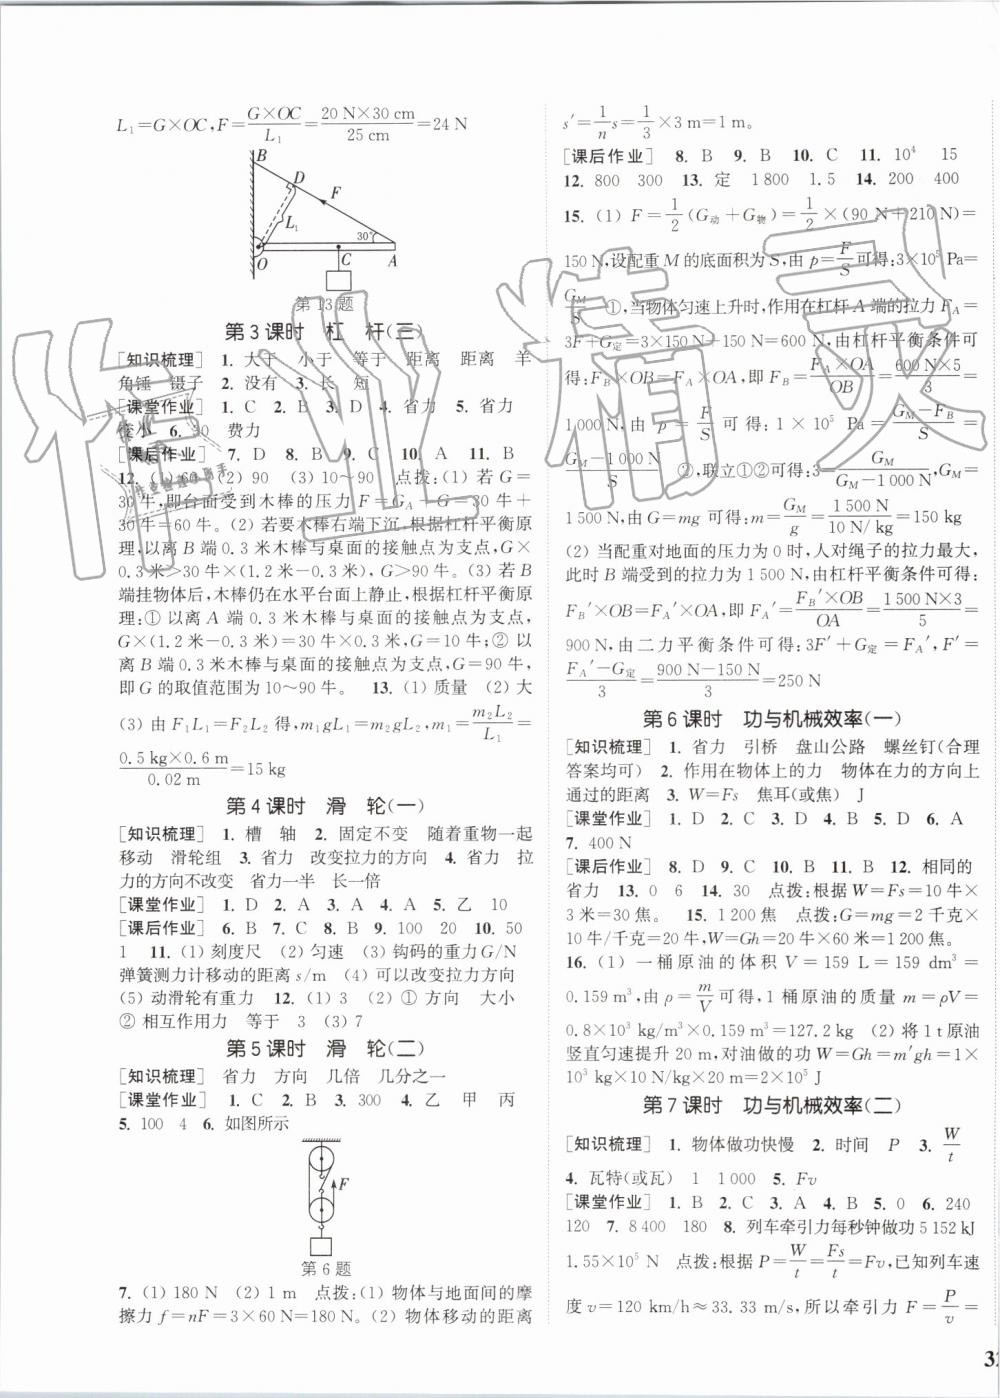 L₁=G×OC,F=G×OC/L₁=20 N×30 cm/25 cm=24 N
B
D
F
L₁
30°
O
C
A
第13题
第3课时 杠 杆(三)
[知识梳理] 1. 大于 小于 等于 距离 距离 羊
角锤 镊子 2. 没有 3. 长 短
[课堂作业] 1. C 2. B 3. D 4. 省力 5. 省力
6. 30 费力
[课后作业] 7. D 8. B 9. B 10. C 11. A 11. B
12. (1) 60 (2) 90 (3) 10～90 点拨:(1) 若 G=
30牛,即台面受到木棒的压力 F=G_A+G=30牛+
30牛=60牛。(2) 若要木棒右端下沉,根据杠杆平衡原
理,以离 B 端 0.3 米木棒与桌面的接触点为支点,G×
0.3米>30牛×(1.2米-0.3米),G>90牛。(3) 若B
端挂物体后,木棒仍在水平台面上静止,根据杠杆平衡原
理:① 以离 A 端 0.3 米木棒与桌面的接触点为支点,
G×(1.2米-0.3米)=30牛×0.3米,G=10牛;② 以
离B端0.3米木棒与桌面的接触点为支点,G=90牛,
即G的取值范围为10～90牛。 13. (1) 质量 (2) 大
(3) 由 F₁L₁=F₂L₂ 得,m₁gL₁=m₂gL₂,m₁=m₂L₂/L₁=
0.5 kg×0.6 m/0.02 m=15 kg
第4课时 滑 轮(一)
[知识梳理] 1. 槽 轴 2. 固定不变 随着重物一起
移动 滑轮组 3. 省力 改变拉力的方向 4. 省力 拉
力的方向不改变 省力一半 长一倍
[课堂作业] 1. D 2. A 3. A 4. A 5. 乙 10
[课后作业] 6. B 7. C 8. B 9. 100 20 10. 50
1 11. (1) 刻度尺 (2) 匀速 (3) 钩码的重力G/N
弹簧测力计移动的距离s/m (4) 可以改变拉力方向
(5) 动滑轮有重力 12. (1) 3 (2) ① 方向 大小
② 相互作用力 等于 3 (3) 7
第5课时 滑 轮(二)
[知识梳理] 省力 方向 几倍 几分之一
[课堂作业] 1. C 2. B 3. 300 4. 乙 甲 丙
5. 100 4 6. 如图所示
F
第6题
7. (1) 180 N (2) 1 m 点拨:(1) 物体与地面间的摩
擦力 f=nF=3×60 N=180 N。(2) 物体移动的距离
s′=1/n s=1/3×3 m=1 m。
[课后作业] 8. B 9. B 10. C 11. 10⁴ 15
12. 800 300 13. 定 1 800 1.5 14. 200 400
15. (1) F=1/2(G动+G物)=1/2×(90 N+210 N)=
150 N,设配重M的底面积为S,由 p=F/S可得:3×10⁵ Pa=
G_M/S ①,当物体匀速上升时,作用在杠杆A端的拉力F_A=
3F+G定=3×150 N+150 N=600 N,由杠杆平衡条件可
得:F_B×OB=F_A×OA,即 F_B=F_A×OA/OB=600 N×5/3=
1 000 N,由 p=F/S 可得:1×10⁵ Pa=G_M-F_B/S=
G_M-1 000 N/S ②,联立①②可得:3=G_M/G_M-1 000 N,G_M=
1 500 N,由G=mg可得:m=G_M/g=1 500 N/10 N/kg=150 kg
(2) 当配重对地面的压力为0时,人对绳子的拉力最大,
此时B端受到的拉力为1 500 N,由杠杆平衡条件可得:
F_B′×OB=F_A′×OA,即 F_A′=F_B′×OB/OA=1 500 N×3/5=
900 N,由二力平衡条件可得:3F′+G定=F_A′,F′=
F_A′-G定/3=900 N-150 N/3=250 N
第6课时 功与机械效率(一)
[知识梳理] 1. 省力 引桥 盘山公路 螺丝钉(合理
答案均可) 2. 作用在物体上的力 物体在力的方向上
通过的距离 3. W=Fs 焦耳(或焦) J
[课堂作业] 1. D 2. C 3. D 4. B 5. D 6. A
7. 400 N
[课后作业] 8. D 9. C 10. B 11. B 12. 相同的
省力 13. 0 6 14. 30 点拨:根据W=Fs=10牛×
3米=30焦。 15. 1 200焦 点拨:G=mg=2千克×
10牛/千克=20牛,W=Gh=20牛×60米=1 200焦。
16. (1) 一桶原油的体积 V=159 L=159 dm³=
0.159 m³,由 ρ=m/V可得,1桶原油的质量 m=ρV=
0.8×10³ kg/m³×0.159 m³=127.2 kg (2) 将1 t原油
竖直匀速提升20 m,对油做的功W=Gh=m′gh=1×
10³ kg×10 N/kg×20 m=2×10⁵ J
第7课时 功与机械效率(二)
[知识梳理] 1. 物体做功快慢 2. 时间 P 3. W/t
4. 瓦特(或瓦) 1 1 000 5. Fv
[课堂作业] 1. B 2. C 3. A 4. B 5. 0 6. 240
120 7. 8 400 180 8. 列车牵引力每秒钟做功5 152 kJ
1.55×10⁵ N 点拨:根据 P=W/t=Fs/t=Fv,已知列车速
度 v=120 km/h≈33.33 m/s,所以牵引力 F=P/v=
作业精灵